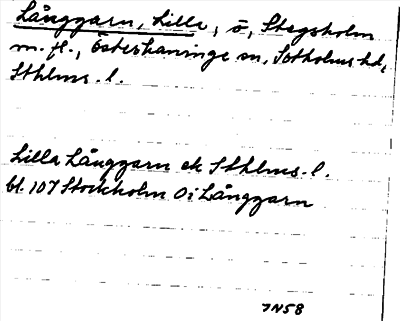 Långgarn, Lilla, ö, Stegsholm
m. fl., Österhaninge sn, Sotholms hd,
Sthlms. l.
Lilla Långgarn ek Sthlms. l.
bl. 107 Stockholm Oi Långgarn
JN58